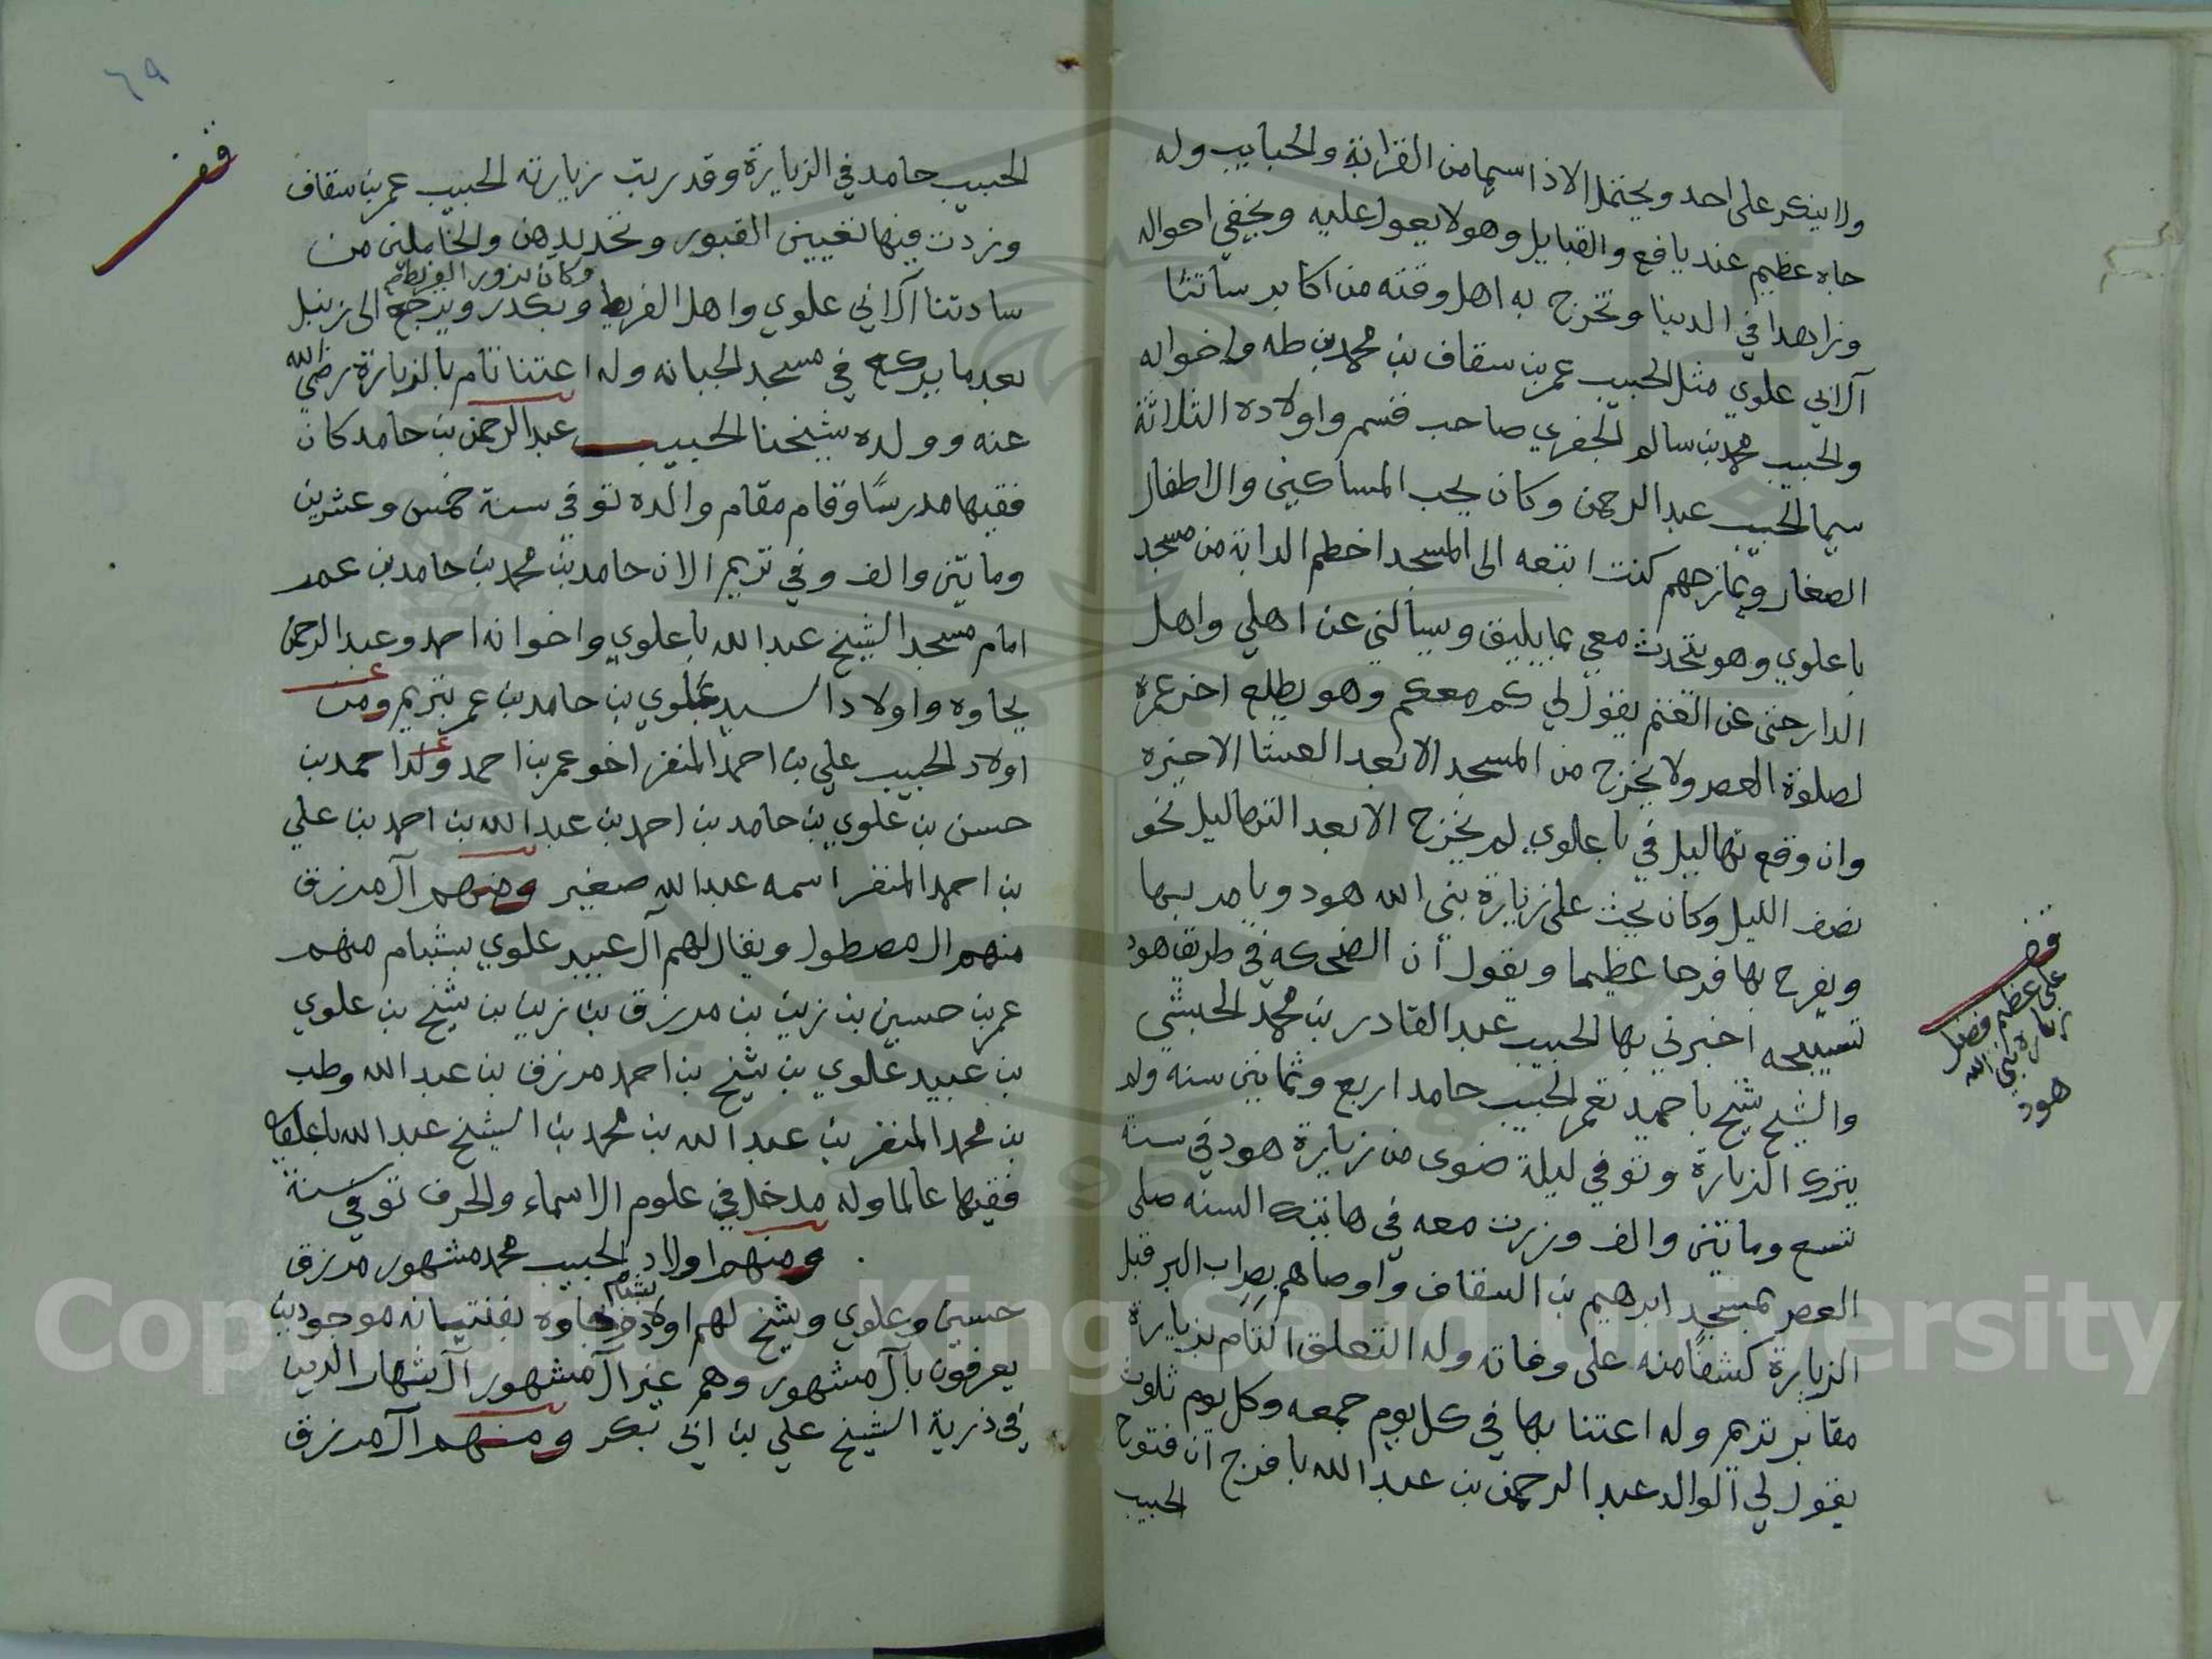 ولا ينكر على احد ويحتمل الاذا سيما من القرابة والحبايب وله
جاه عظيم عند يافع والقبايل وهو لا يعول عليه ويخفي احواله
وزاهدا في الدنيا وتخرج به اهل وقته من اكابر ساتنا
آل ابي علوي مثل الحبيب عمر بن سقاف بن محمد بن طه واخواله
والحبيب محمد بن سالم الجفري صاحب قسم واولاده الثلاثة
سيما الحبيب عبد الرحمن وكان يحب المساكين والاطفال
الصغار ويمازحهم كنت اتبعه الى المسجد اخطم الدابة من مسجد
باعلوي وهو يتحدث معي بما يليق ويسألني عن اهلي واهل
الدار حتى عن الغنم يقول لي كم معكم وهو يطلع اخر عمره
لصلوة العصر ولا يخرج من المسجد الا بعد العشا الاخيره
وان وقع تهاليل في باعلوي لم يخرج الا بعد التهاليل نحو
نصف الليل وكان يحث على زيارة نبي الله هود ويامر بها
ويفرح بها فرحا عظيما ويقول ان الضحكه في طريق هود
تسبيحه اخبرني بها الحبيب عبد القادر بن محمد الحبشي
والشيخ شيخ باحميد تعمر الحبيب حامد اربع وثمانين سنه ولم
يترك الزيارة وتوفي ليلة ضوى من زيارة هود في سنة
تسع وماتين والف وزرت معه في هاتيك السنه صلى
العصر بمسجد ابرهيم بن السقاف واوصاهم بصراب البر قبل
الزيارة كشفا منه على وفاته وله التعلق التام بزيارة
مقابر تريم وله اعتنا بها في كل يوم جمعه وكل يوم ثلوث
يقول لي الوالد عبد الرحمن بن عبد الله بافرج ان فتوح
الحبيب
قف
على عظم فضل
زيارة نبي الله
هود
٦٩
قف
الحبيب حامد في الزيارة وقد ريت زيارته الحبيب عمر بن سقاف
وزدت فيها تعيين القبور وتحديدهن والخاملين من
وكان يزور الفريط ثم
سادتنا آل ابي علوي واهل الفريط وبكدر ويرجع الى زنبل
بعد ما يركع في مسجد الجبانه وله اعتنا تام بالزيارة رضي الله
عنه وولده شيخنا الحبيب عبد الرحمن بن حامد كان
فقيها مدرسا وقام مقام والده توفي سنة خمس وعشرين
وماتين والف وفي تريم الان حامد بن محمد بن حامد بن عمر
امام مسجد الشيخ عبد الله باعلوي واخوانه احمد وعبد الرحمن
بجاوه واولاد السيد علوي بن حامد بن عمر بتريم ومن
اولاد الحبيب علي بن احمد المنفر اخو عمر بن احمد ولد احمد بن
حسن بن علوي بن حامد بن احمد بن عبد الله بن احمد بن علي
بن احمد المنفر اسمه عبد الله صغير ومنهم آل مرزق
منهم ال مصطول ويقال لهم آل عبيد علوي بشبام منهم
عمر بن حسين بن زين بن مرزق بن زين بن شيخ بن علوي
بن عبيد علوي بن شيخ بن احمد مرزق بن عبد الله وطب
بن محمد المنفر بن عبد الله بن محمد بن الشيخ عبد الله باعلوي كان
فقيها عالما وله مدخل في علوم الاسماء والحرف توفي سنة
ومنهم اولاد الحبيب محمد مشهور مرزق
بشبام
حسين وعلوي وشيخ لهم اولاد وبجاوه بفنتيانه موجودين
يعرفون بآل مشهور وهم غير آل مشهور آل شهاب الدين
في ذرية الشيخ علي بن ابي بكر ومنهم آل مرزق
Copyright © King Saud University